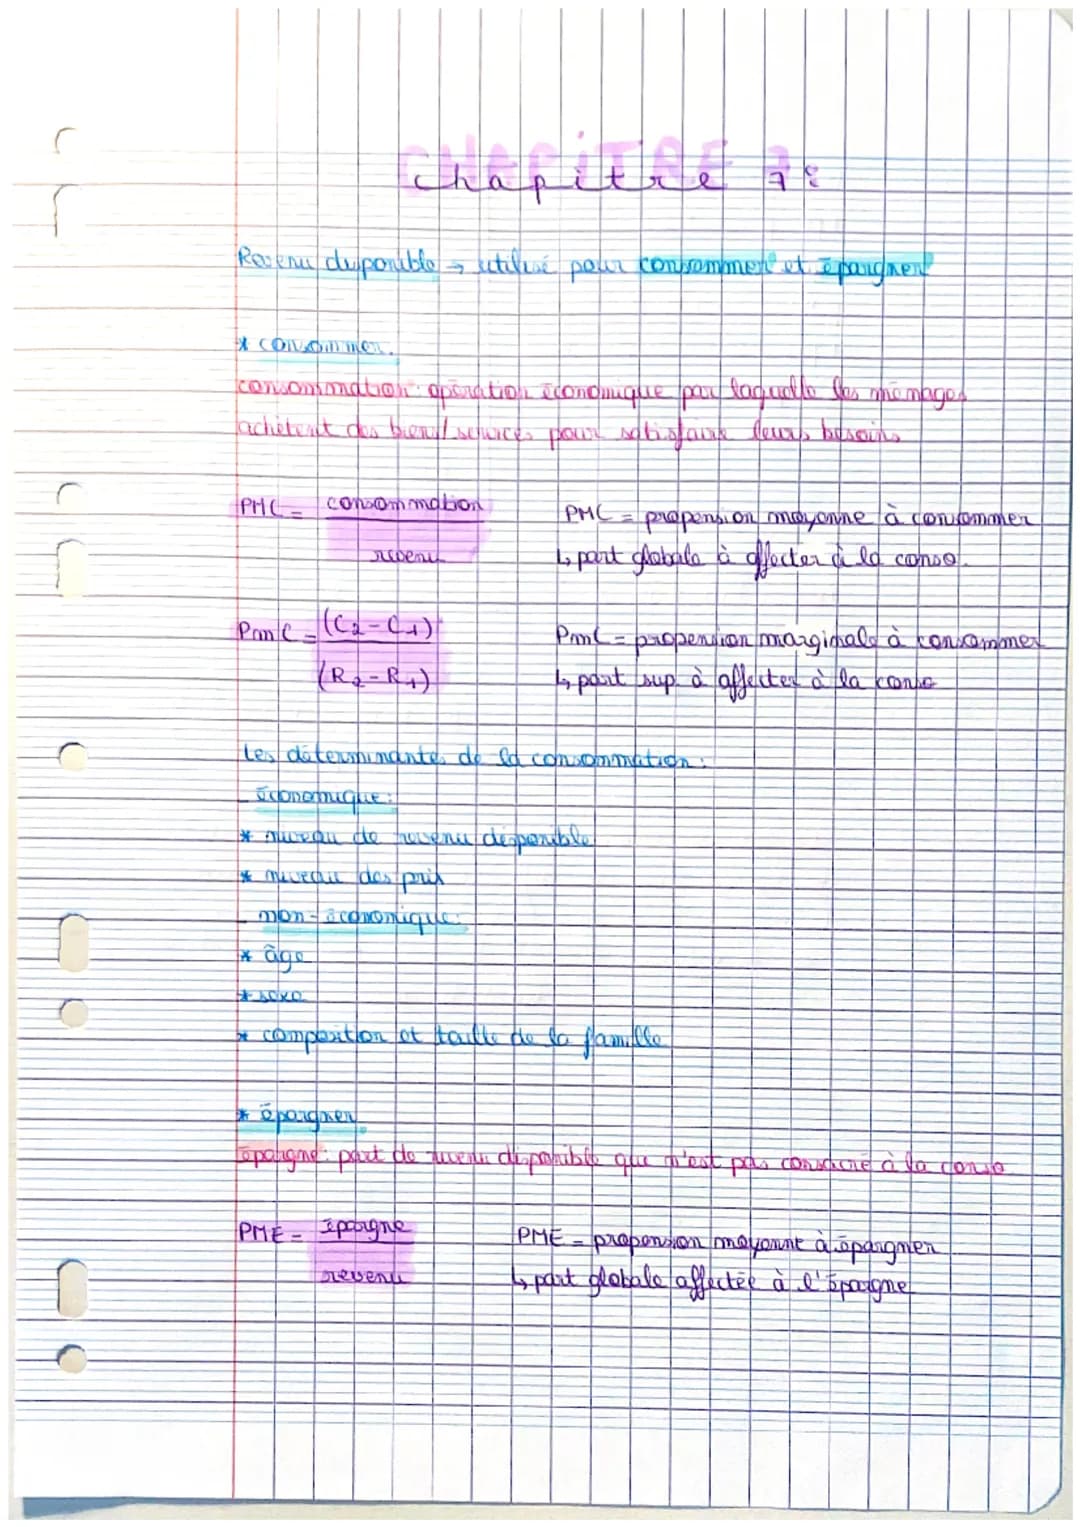 Chapitre 7 :
Revenu disponible → utilisé pour consommer et épargner
* consommer.
consommation : opération économique par laquelle les ménages
achètent des biens/services pour satisfaire leurs besoins
PMC = consommation / revenu
PMC = propension moyenne à consommer
↳ part globale à affecter à la conso.
PmC = (C2-C1) / (R2-R1)
PmC = propension marginale à consommer
↳ part sup à affecter à la conso
Les déterminants de la consommation :
- économique :
* niveau de revenu disponible
* niveau des prix
- non-économique :
* âge
* sexe
* composition et taille de la famille
* épargner
épargne : part de revenu disponible qui n'est pas consacré à la conso
PME = épargne / revenu
PME = propension moyenne à épargner
↳ part globale affectée à l'épargne